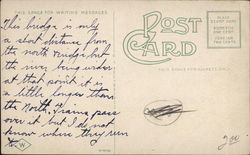 THIS SPACE FOR WRITING MESSAGES
POST CARD
THIS SPACE FOR ADDRESS ONLY
This bridge is only
a short distance from
the north bridge but
the river being wider
at that point it is
a little longer than
the North. Trains pass
over it but I do not
know where they run
to.
W
PLACE
STAMP HERE
DOMESTIC
ONE CENT
FOREIGN
TWO CENTS
200